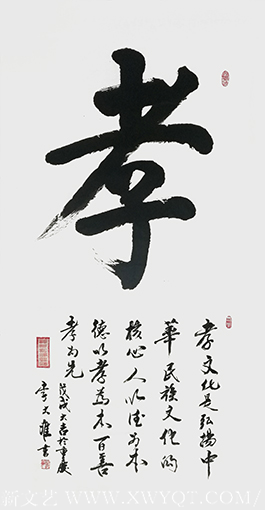 孝
孝文化是弘揚中
華民族文化的
核心人以德為本
德以孝為本百善
孝為先
戊戌大吉於重慶
李文雅書
新文艺 WWW.XWYQ7.COM/